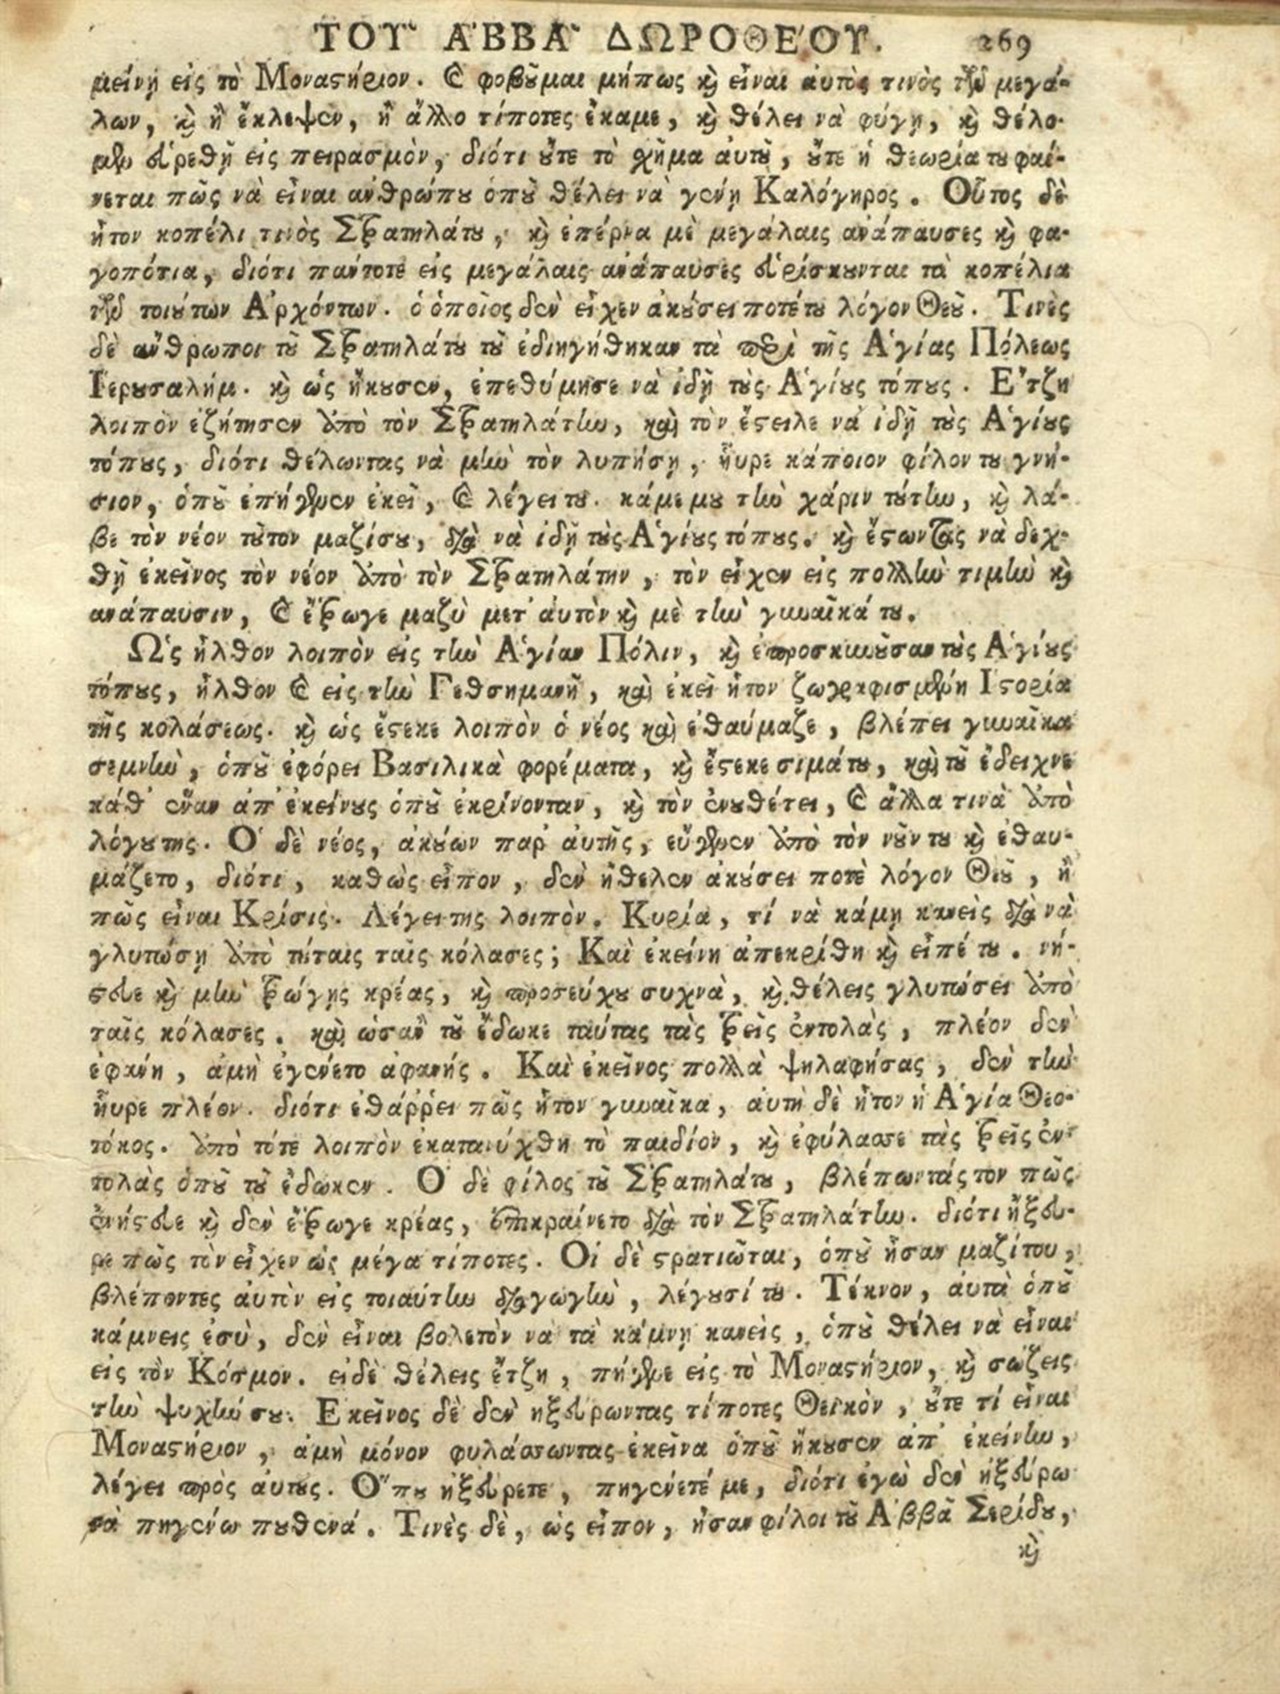 ΤΟΥ͂ ἈΒΒΑ͂ ΔΩΡΟΘΕΌΥ. 269
μείνῃ εἰς τὸ Μοναστήριον. καὶ φοβοῦμαι μήπως καὶ εἶναι ἀυτὸς τινὸς τῶν μεγά-
λων, καὶ ἢ ἔκλεψεν, ἢ ἄλλο τίποτες ἔκαμε, καὶ θέλει νὰ φύγῃ, καὶ θέλο-
μεν εὑρεθῇ εἰς πειρασμὸν, διότι οὔτε τὸ χῆμα ἀυτοῦ, οὔτε ἡ θεωρία του φαί-
νεται πῶς νὰ εἶναι ἀνθρώπου ὁποῦ θέλει νὰ γενῇ Καλόγηρος. Οὗτος δὲ
ἦτον κοπέλι τινὸς Στρατηλάτου, καὶ ἐπέρνα μὲ μεγάλαις ἀνάπαυσες καὶ φα-
γοπότια, διότι πάντοτε εἰς μεγάλαις ἀνάπαυσες εὑρίσκουνται τὰ κοπέλια
τῶν τοιούτων Ἀρχόντων. ὁ ὁποῖος δὲν εἶχεν ἀκούσει ποτέ του λόγον Θεοῦ. Τινὲς
δὲ ἄνθρωποι τοῦ Στρατηλάτου τοῦ ἐδιηγήθηκαν τὰ περὶ τῆς Ἁγίας Πόλεως
Ἱερουσαλήμ. καὶ ὡς ἤκουσεν, ἐπεθύμησε νὰ ἰδῇ τοὺς Ἁγίους τόπους. Ἔτζη
λοιπὸν ἐζήτησεν ἀπὸ τὸν Στρατηλάτην, καὶ τὸν ἔστειλε νὰ ἰδῇ τοὺς Ἁγίους
τόπους, διότι θέλωντας νὰ μὴν τὸν λυπήσῃ, ἧυρε κάποιον φίλον του γνή-
σιον, ὁποῦ ἐπήγαινεν ἐκεῖ, καὶ λέγει του. κάμε μου τὴν χάριν τούτην, καὶ λά-
βε τὸν νέον τοῦτον μαζίσου, διὰ νὰ ἰδῇ τοὺς Ἁγίους τόπους. καὶ ἔστωντας νὰ δεχ-
θῇ ἐκεῖνος τὸν νέον ἀπὸ τὸν Στρατηλάτην, τὸν εἶχεν εἰς πολλὴν τιμὴν καὶ
ἀνάπαυσιν, καὶ ἔτρωγε μαζὺ μετ' ἀυτὸν καὶ μὲ τὴν γυναῖκά του.
Ὡς ἦλθον λοιπὸν εἰς τὴν Ἁγίαν Πόλιν, καὶ ἐπροσκυνοῦσαν τοὺς Ἁγίους
τόπους, ἦλθον καὶ εἰς τὴν Γεθσημανῆ, καὶ ἐκεῖ ἦτον ζωγραφισμένη Ἱστορία
τῆς κολάσεως. καὶ ὡς ἔστεκε λοιπὸν ὁ νέος καὶ ἐθαύμαζε, βλέπει γυναῖκα
σεμνὴν, ὁποῦ ἐφόρει Βασιλικὰ φορέματα, καὶ ἔστεκε σιμάτου, καὶ τοῦ ἔδειχνε
κάθ' ἕναν ἀπ' ἐκείνους ὁποῦ ἐκρίνονταν, καὶ τὸν ἐνουθέτει, καὶ ἄλλα τινὰ ἀπὸ
λόγου της. Ὁ δὲ νέος, ἀκούων παρ' ἀυτῆς, εὔγαινεν ἀπὸ τὸν νοῦν του καὶ ἐθαυ-
μάζετο, διότι, καθὼς εἶπον, δὲν ἤθελεν ἀκούσει ποτὲ λόγον Θεοῦ, ἢ
πῶς εἶναι Κρίσις. Λέγει της λοιπὸν. Κυρία, τί νὰ κάμῃ κανεὶς διὰ νὰ
γλυτώσῃ ἀπὸ τούταις ταῖς κόλασες; Καὶ ἐκείνη ἀπεκρίθη καὶ εἶπέ του. νή-
στευε καὶ μὴν τρώγῃς κρέας, καὶ προσεύχου συχνὰ, καὶ θέλεις γλυτώσει ἀπὸ
ταῖς κόλασες. καὶ ὡσὰν τοῦ ἔδωκε ταύτας τὰς τρεῖς ἐντολὰς, πλέον δὲν
ἐφάνη, ἀμὴ ἐγένετο ἀφανής. Καὶ ἐκεῖνος πολλὰ ψηλαφήσας, δὲν τὴν
ἧυρε πλέον. διότι ἐθάῤῥει πῶς ἦτον γυναῖκα, ἀυτὴ δὲ ἦτον ἡ Ἁγία Θεο-
τόκος. ἀπὸ τότε λοιπὸν ἐκατανύχθη τὸ παιδίον, καὶ ἐφύλασσε τὰς τρεῖς ἐν-
τολὰς ὁποῦ τοῦ ἔδωκεν. Ὁ δὲ φίλος τοῦ Στρατηλάτου, βλέπωντάς τον πῶς
ἐνήστευε καὶ δὲν ἔτρωγε κρέας, ἐπικραίνετο διὰ τὸν Στρατηλάτην. διότι ἤξευ-
ρε πῶς τὸν εἶχεν ὡς μέγα τίποτες. Οἱ δὲ στρατιῶται, ὁποῦ ἦσαν μαζίτου,
βλέποντες ἀυτὸν εἰς τοιαύτην διαγωγὴν, λέγουσί του. Τέκνον, ἀυτὰ ὁποῦ
κάμνεις ἐσὺ, δὲν εἶναι βολετὸν νὰ τὰ κάμνῃ κανεὶς, ὁποῦ θέλει νὰ εἶναι
εἰς τὸν Κόσμον. εἰδὲ θέλεις ἔτζη, πήγαινε εἰς τὸ Μοναστήριον, καὶ σώζεις
τὴν ψυχήν σου. Ἐκεῖνος δὲ δὲν ηξεύρωντας τίποτες Θεϊκὸν, οὔτε τί εἶναι
Μοναστήριον, ἀμὴ μόνον φυλάσσωντας ἐκεῖνα ὁποῦ ἤκουσεν ἀπ' ἐκείνην,
λέγει πρὸς ἀυτους. Ὅπου ἠξεύρετε, πηγένετέ με, διότι ἐγὼ δὲν ἠξεύρω
νὰ πηγένω πουθενά. Τινὲς δὲ, ὡς εἶπον, ἦσαν φίλοι τοῦ Ἀββᾶ Σερίδου,
καὶ